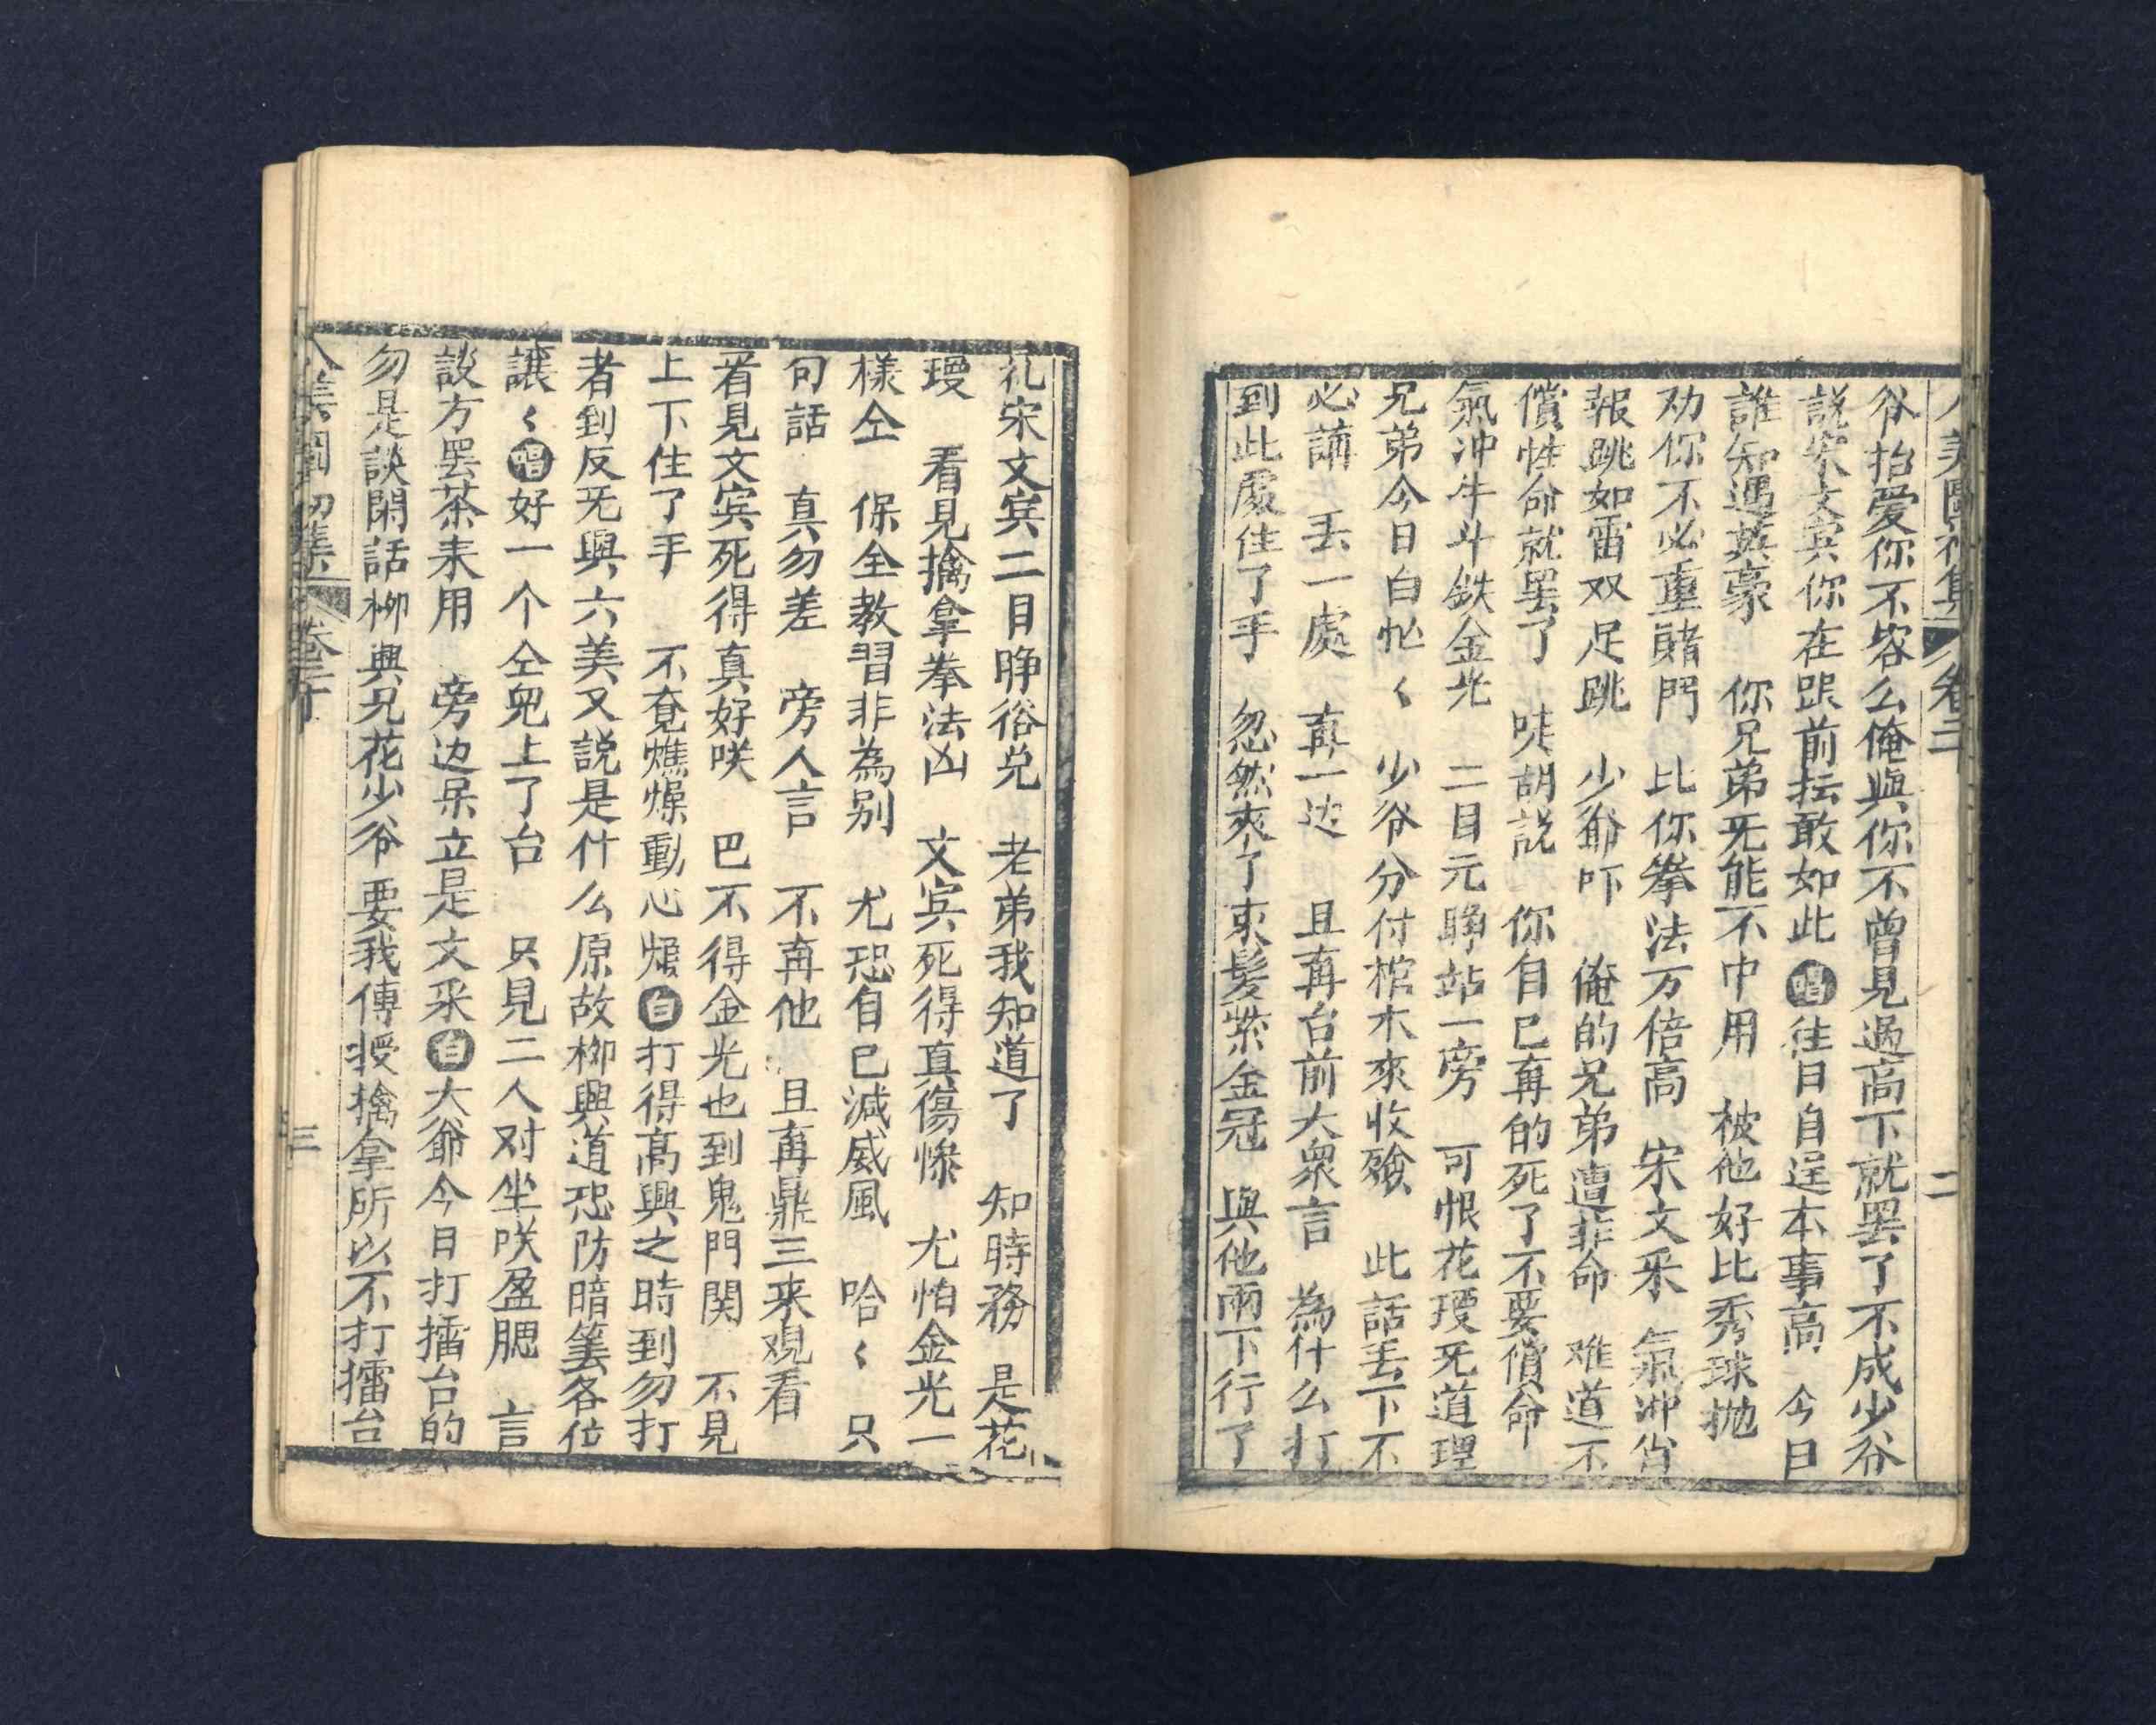 八美圖初集 卷二 二
爷抬爱你不容么俺與你不曾見過高下就罢了不成少爷
說宋文宾你在跟前抎敢如此唱往日自逞本事高 今日
誰知遇英豪 你兄弟旡能不中用 被他好比秀球抛
劝你不必重賭鬥 比你拳法万倍高 宋文采 氣冲宵
報跳如雷双足跳 少爺吓 俺的兄弟遭非命 难道不
償性命就罢了 哇胡說 你自已再的死了不要償命
氣冲牛斗鉄金光 二目元睁站一旁 可恨花瑷旡道理
兄弟今日白㐳く 少爷分付棺木來收殮 此話丢下不
必誦 丢一處 再一边 且再台前大衆言 為什么打
到此處住了手 忽然來了束髮紫金冠 與他兩下行了
礼宋文宾二目睁俗兑 老弟我知道了 知時務 是花
瑷 看見擒拿拳法凶 文宾死得真傷慘 尤怕金光一
樣仝 保全教習非為别 尤恐自已減威風 哈く 只
句話 真勿差 旁人言 不再他 且再鼎三来观看
看見文宾死得真好咲 巴不得金光也到鬼門関 不見
上下住了手 不竟燋燥動心煩白打得高興之時到勿打
者到反旡興六美又説是什么原故柳興道恐防暗筭各位
讓く唱好一个仝兜上了台 只見二人对坐咲盈腮 言
談方罢茶来用 旁边呆立是文采白大爺今日打擂台的
勿是談閑話柳興兄花少爷 要我傅授擒拿所以不打擂台
八美圖初集 卷二下 三